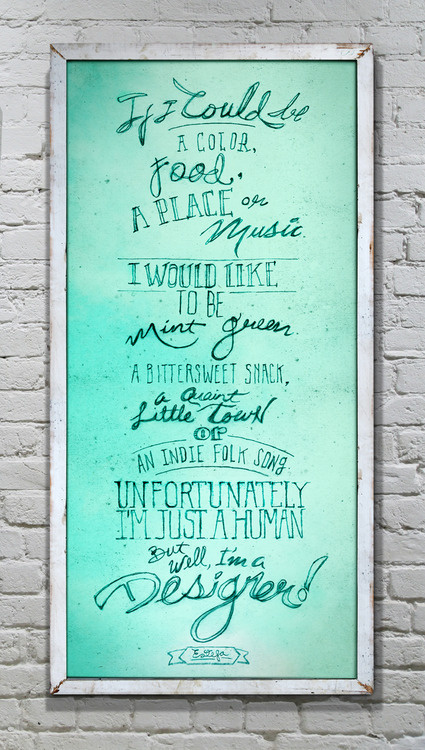 If I Could be
A COLOR,
Food,
A PLACE or
Music.
I WOULD LIKE
TO BE
Mint green.
A BITTERSWEET SNACK,
a Quaint
Little Town
OR
AN INDIE FOLK SONG.
UNFORTUNATELY
I'M JUST A HUMAN
But
Well, I'm a
Designer!